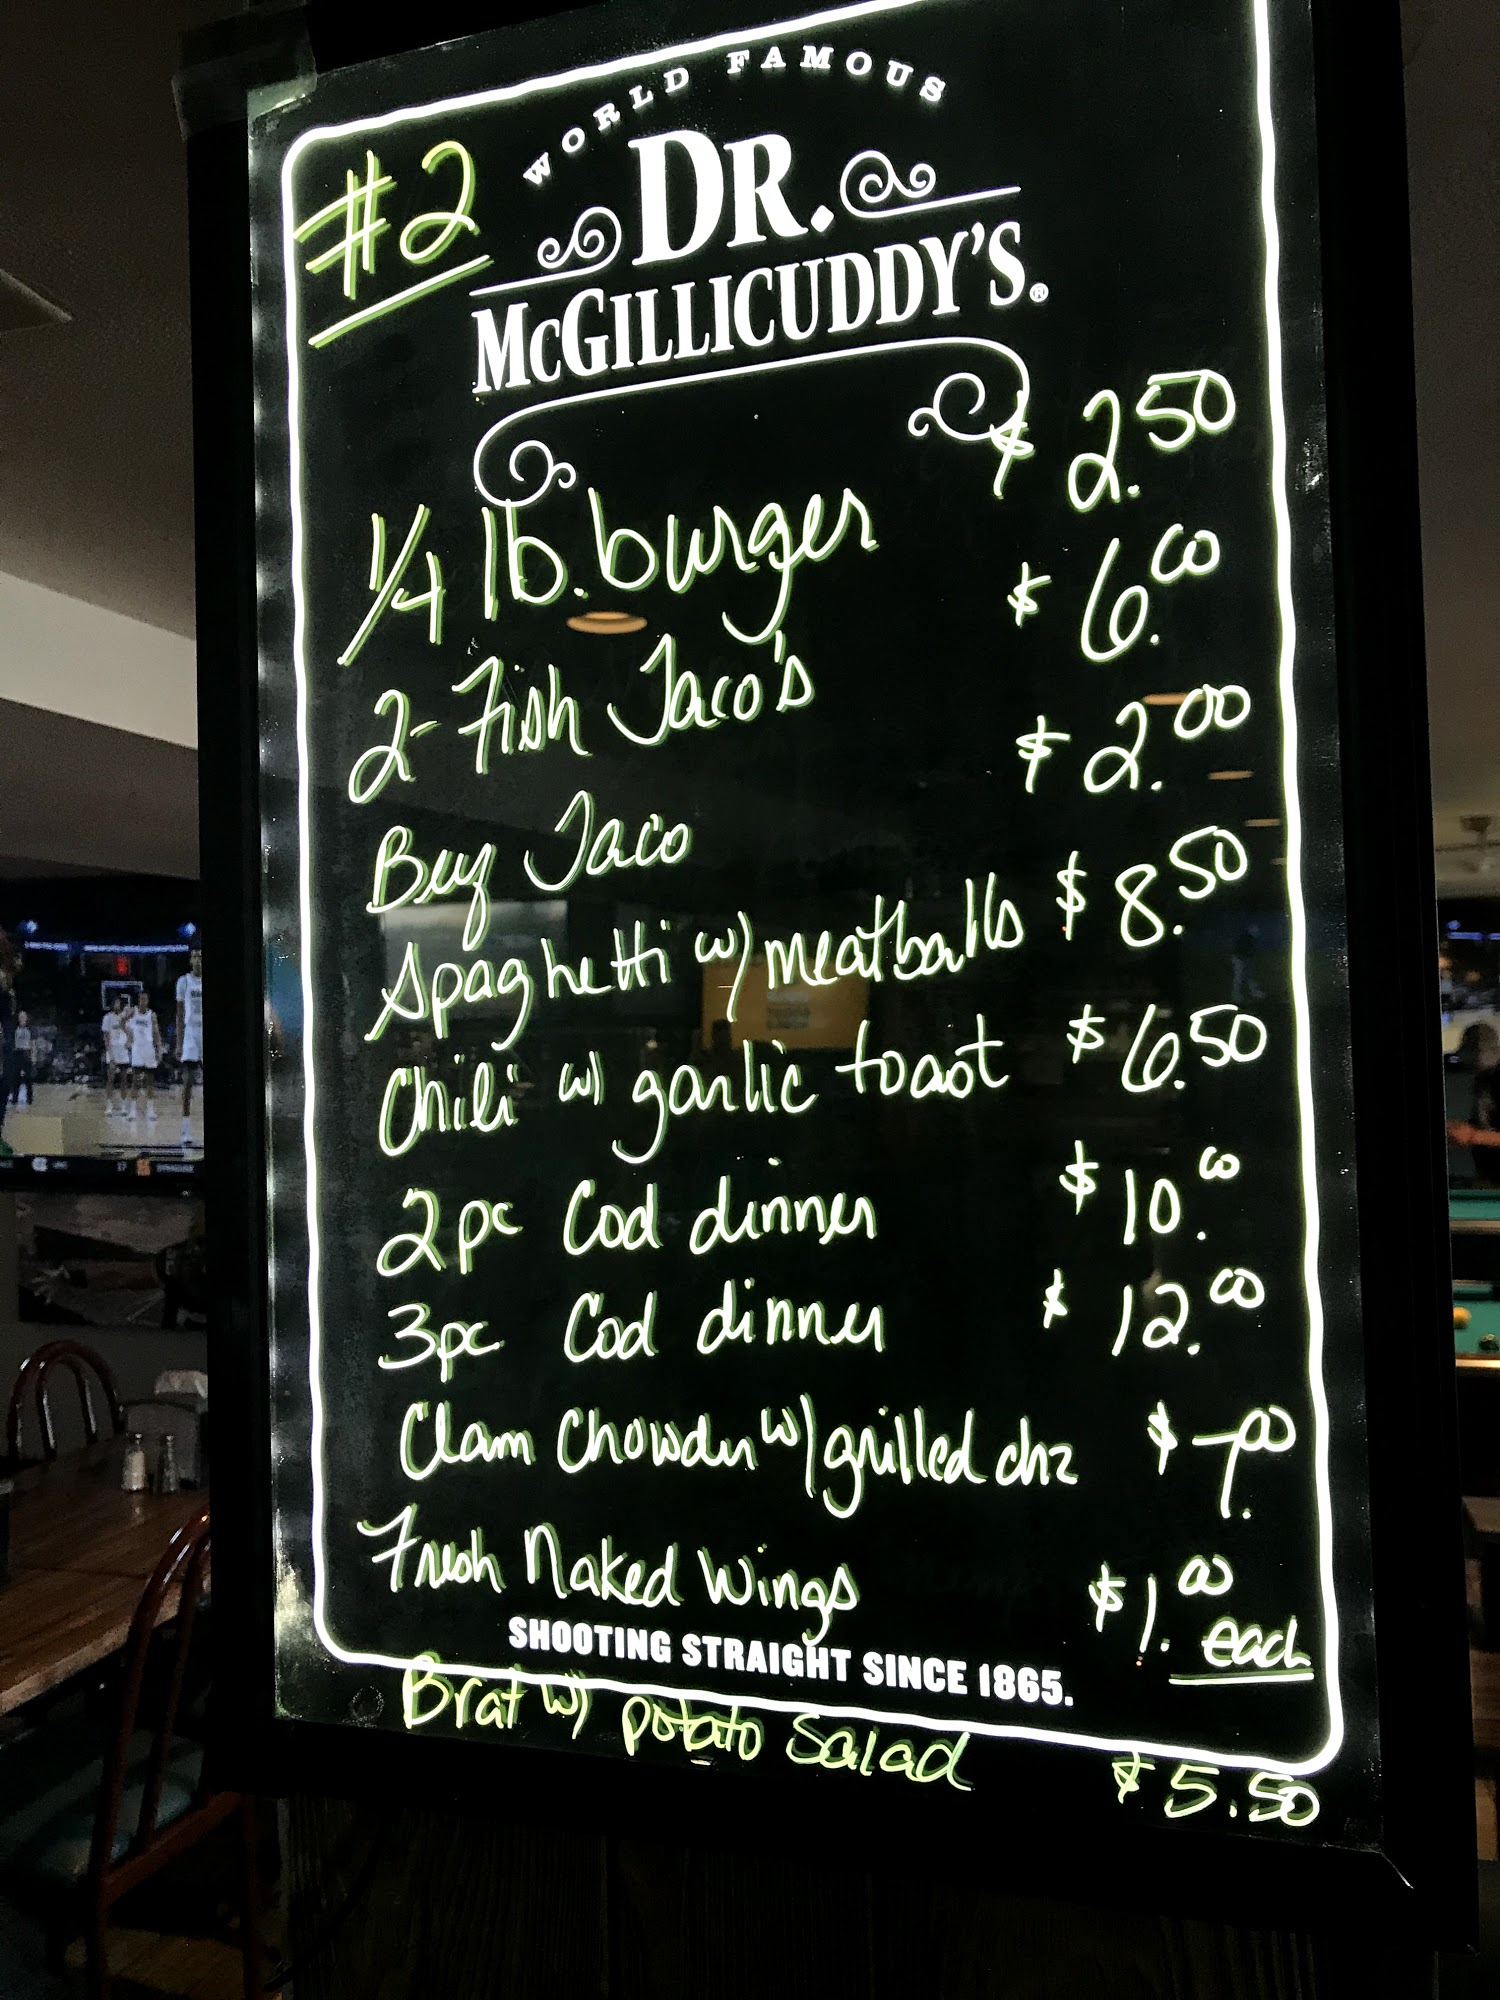 #2
WORLD FAMOUS
DR.
McGILLICUDDY'S®
1/4 lb. burger $2.50
2- Fish Taco's $6.00
Beef Taco $2.00
Spaghetti w/ meatballs $8.50
Chili w/ garlic toast $6.50
2pc Cod dinner $10.00
3pc Cod dinner $12.00
Clam Chowder w/ grilled chz $7.00
Fresh Naked Wings $1.00 each
SHOOTING STRAIGHT SINCE 1865.
Brat w/ potato salad $5.50